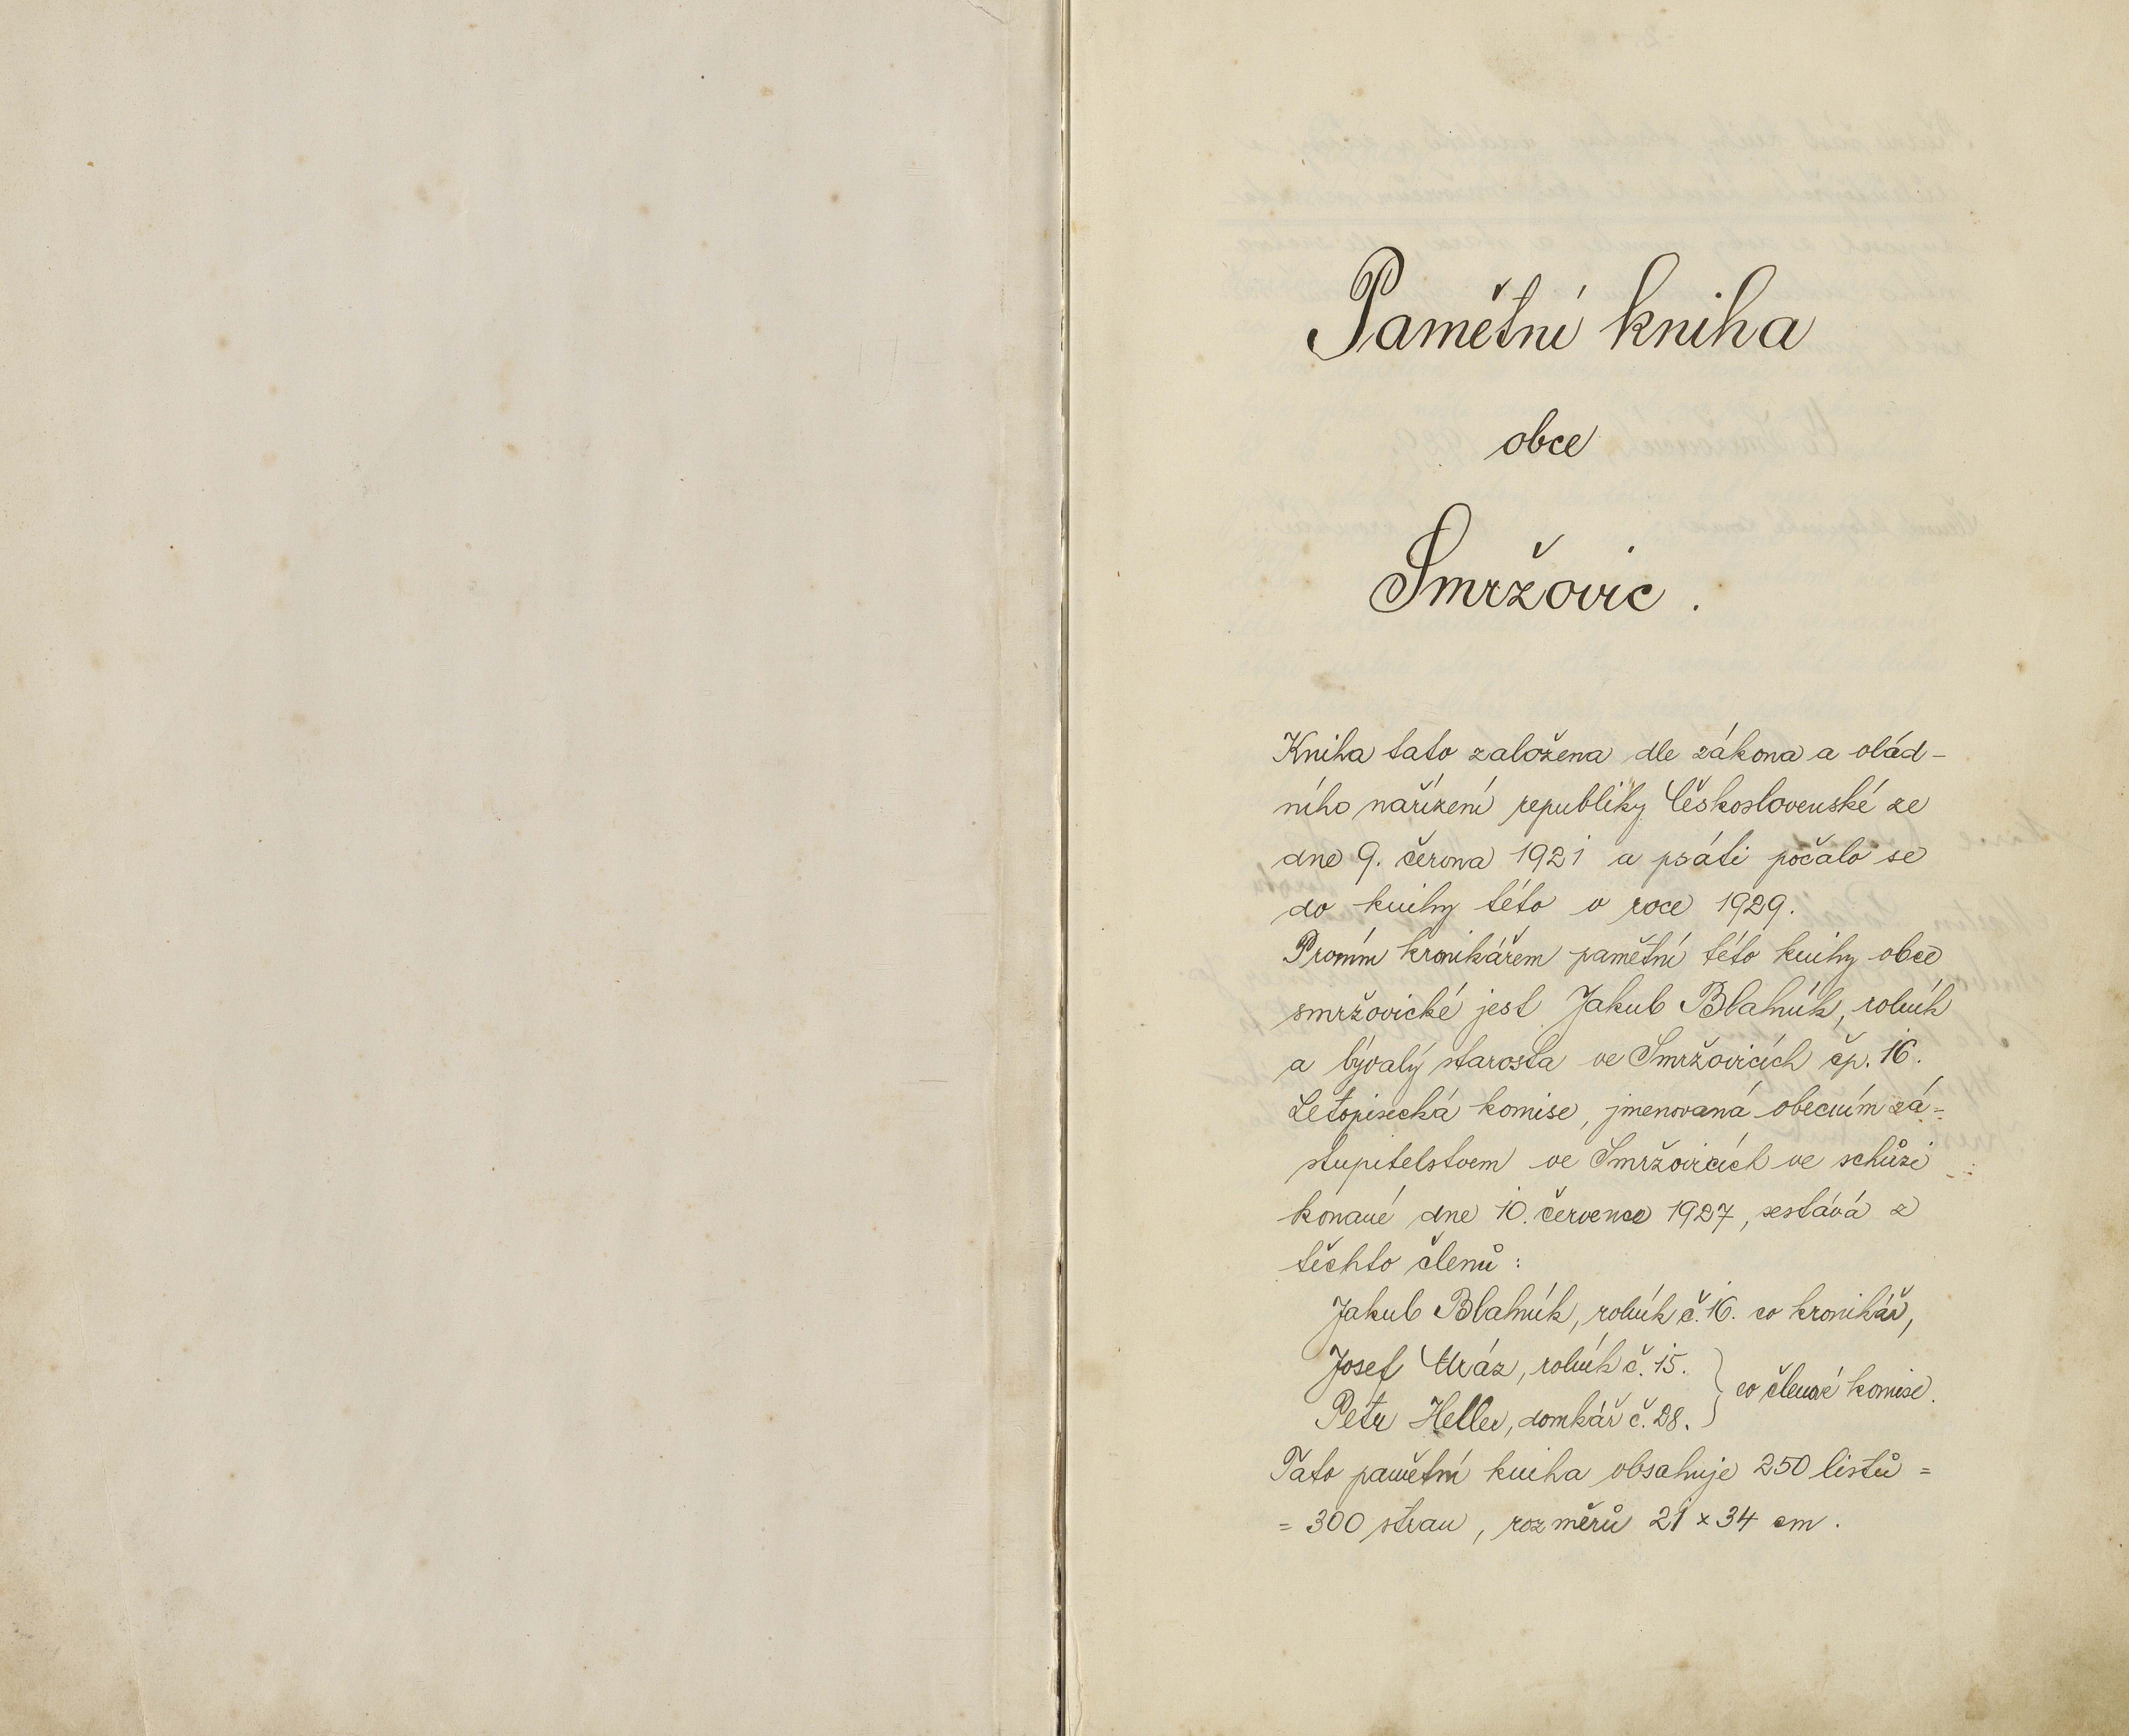 Pamětní kniha
obce
Smržovic.
Kniha tato založena dle zákona a vlád-
ního nařízení republiky Československé ze
dne 9. června 1921 a psáti počalo se
do knihy této v roce 1929.
Prvním kronikářem pamětní této knihy obce
smržovické jest Jakub Blahník, rolník
a bývalý starosta ve Smržovicích čp. 16.
Letopisecká komise, jmenovaná obecním zá-
stupitelstvem ve Smržovicích ve schůzi
konané dne 10. července 1927, sestává z
těchto členů:
Jakub Blahník, rolník č. 16. co kronikář,
Josef Mráz, rolník č. 15.
Petr Heller, domkář č. 28. } co členové komise.
Tato pamětní kniha obsahuje 250 listů =
= 300 stran, rozměrů 21 x 34 cm.